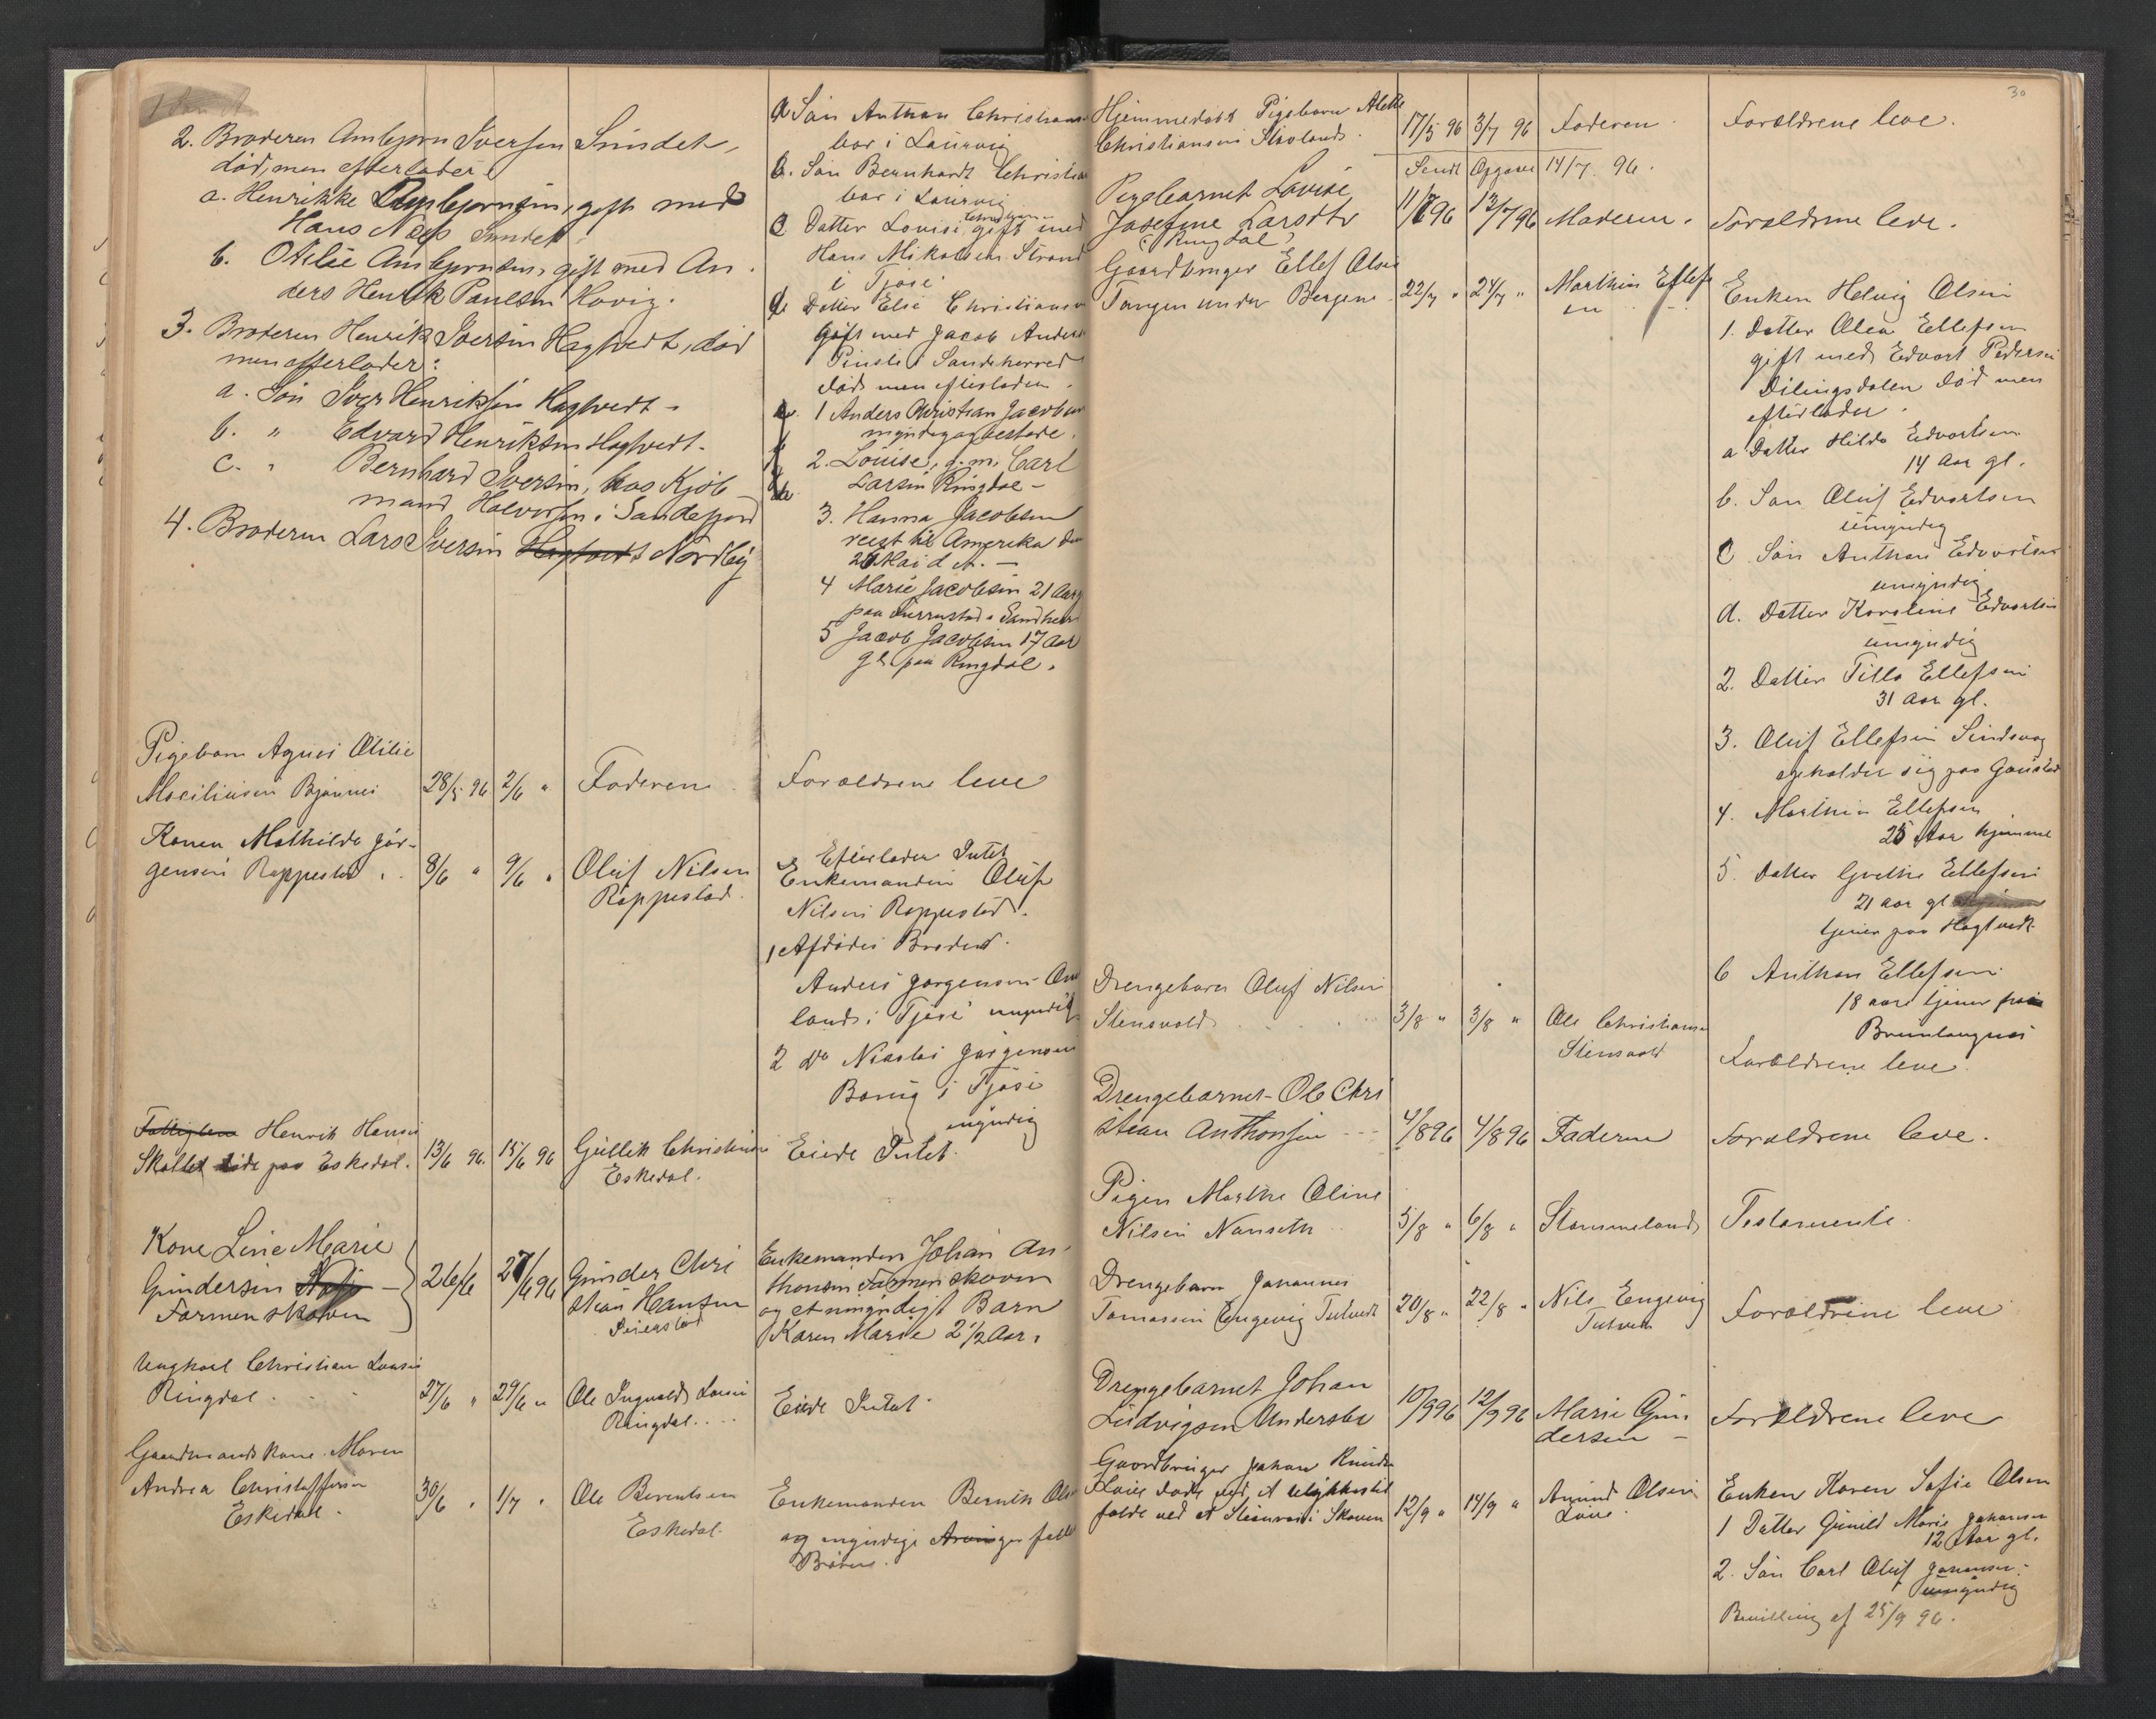 2. Broderen Ambjørn Iversen Sundet,
død, men efterlader
a. Henrikke Ambjørnsen, gift med
Hans Næss Sundet
b. Otilie Ambjørnsen, gift med An-
ders Henrik Paulsen Kovig.
3. Broderen Henrik Iversen Hagtvedt, død
men efterlader:
a. Søn Iver Henriksen Hagtvedt -
b. " Edvard Henriksen Hagtvedt.
c. " Bernhard Iversen, hos Kjøb
mand Halvorsen i Sandefjord
4. Broderen Lars Iversen Hagtvedt Nordby
a Søn Anthon Christians
bor i Laurvig
b. Søn Bernhardt Christia
bor i Laurvig
c Datter Lovise gift med
Hans Mikalsen Strand
i Tjøse
d Datter Elise Christianse
gift med Jacob Anders
i Sandeherred
død men efterladen
1 Anders Christian Jacobsen
myndig
2. Louise, g. m. Carl
Larsen Ringdal -
3. Hanna Jacobsen
reist til Amerika den
Mai d. A. -
4 Marie Jacobsen 21 Aar
paa
5 Jacob Jacobsen 17 Aar
gl. paa Ringdal.
Pigebarn Agnes Otilie
28/5 96 2/6 " Faderen Forældrene leve
Konen Mathilde Jør-
gensen Rappestad. 8/6 " 9/6 " Oluf Nilsen
Rappestad.
Efterlader Intet
Enkemanden Oluf
Nilsen Rappestad.
1 Afdødes Broder
Anders Jørgensen
land i Tjøse myndig
2 do Nicolai Jørgensen
i Tjøse
myndig
Henrik Hansen
paa Eskedal. 13/6 96. 15/6 96 Gullik Christiansen
Eskedal.
Eiede Intet.
Kone Line Marie
Gundersen
Farmenskoven
26/6 27/6 96 Gunder Chri
stian Hansen
Seierstad
Enkemanden Johan An-
thonsen Farmenskoven
og et umyndigt Barn
Karen Marie 2 1/2 Aar.
Ungkarl Christian Larsen
Ringdal. 27/6 " 29/6 " Ole Ingvald Larsen
Ringdal.
Eiede Intet.
Gaardmandskone Maren
Andrea Christoffersen
Eskedal. 30/6 " 1/7 " Ole Berentsen
Eskedal.
Enkemanden Bernth Ols
og myndige Arvinger
Børn.
30
Hjemmedøbt Pigebarn Alette
Christiansen 17/5 96 3/7 96 Faderen Forældrene leve.
Sendt Opgave 14/7 96.
Pigebarnet Lovise
Josefine Larsdtr
(Ringdal) 11/7 96 13/7 96 Moderen. Forældrene leve.
Gaardbruger Ellef Olsen
Tangen under Bergene 22/7 " 24/7 " Marthin Ellefs
en
Enken Helvig Olsen
1. Datter Olea Ellefsen
gift med Edvart Pedersen
Dilingsdalen død men
efterlader.
a Datter Hilda Edvartsen
14 Aar gl.
b. Søn Oluf Edvartsen
umyndig
c Søn Anthon Edvartsen
umyndig
d. Datter Karoline Edvartsen
umyndig
2. Datter Tilla Ellefsen
31 Aar gl.
3. Oluf Ellefsen
opholder sig paa
4. Marthin Ellefsen
25 Aar hjemme
5. Datter Grethe Ellefsen
21 Aar gl
tjener paa Hagtvedt
6 Anthon Ellefsen
18 aar tjener paa
Drengebarn Oluf Nilsen
Stensvold 3/8 " 3/8 " Ole Christiansen
Stensvold
Forældrene leve.
Drengebarnet Ole Chri
stian Anthonsen 4/8 96 4/8 96 Faderen Forældrene leve.
Pigen Marthe Oline
Nilsen Nanseth 5/8 " 6/8 " Stammeland Testamente.
Drengebarn Johannes
Tomassen Engevig Tutvedt 20/8 " 22/8 " Nils Engevig
Tutvedt
Forældrene leve
Drengebarnet Johan
Ludvigsen Undersbo 10/9 96 12/9 96 Marie Gun
dersen -
Forældrene leve
Gaardbruger Johan
døde ved et ulykkestil
fælde ved et i Skoven 12/9 " 14/9 " Amund Olsen
Enken Karen Sofie Olsen
1 Datter Gunild Marie Johansen
12 Aar gl.
2. Søn Carl Oluf Johansen
umyndig
Bevilling af 25/9 96.